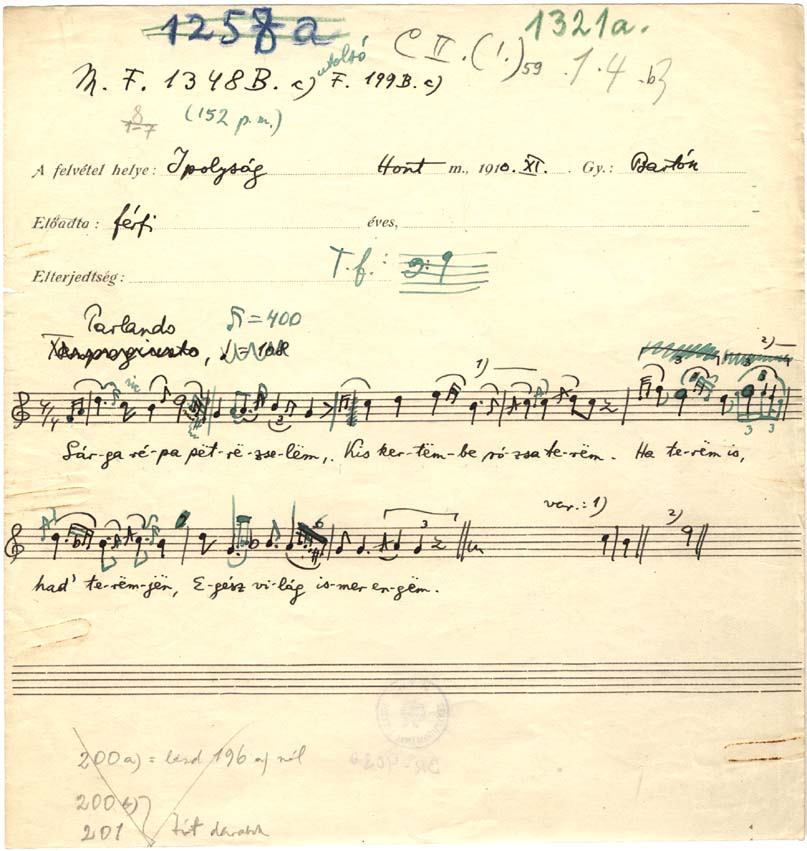 1258a 1321a.
C II. (1.) 59 1. 4. b)
M. F. 1348B. c) utolsó F. 199B. c)
8
1-7 (152 p. m.)
A felvétel helye: Ipolyság Hont m., 1910. XI. Gy.: Bartók
Előadta: férfi éves,
Elterjedtség: T. f.:
Parlando ♫ = 400
1) 3 2) 3
Sár-ga ré-pa pët-rë-zse-lëm,. Kis ker-tëm-be ró-zsa te-rëm. Ha te-rëm is,
6 3 var.: 1) 2)
had' te-rëm-jën, E-gész vi-lág is-mer en-gëm.
200 a) = lásd 196 a) nál
200 b)
201 darabok